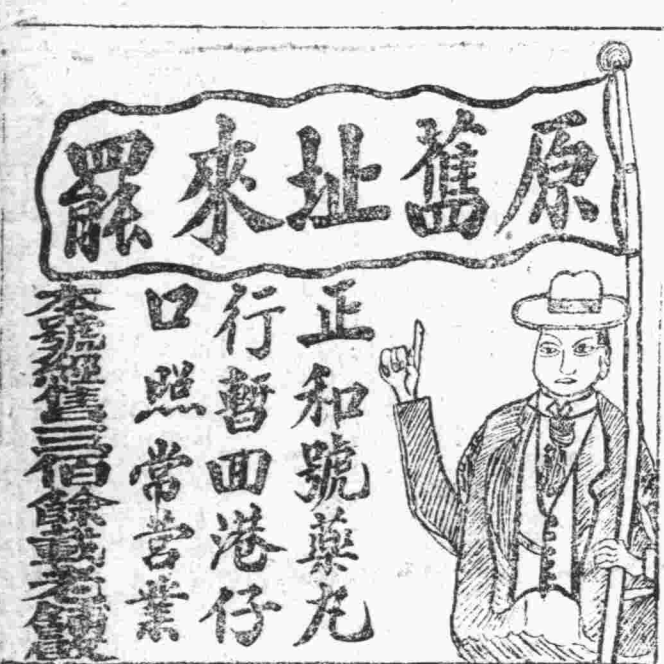 原舊址來罷
正和號藥丸
行暫回港仔
口照常营業
本號經售三百餘載老鋪